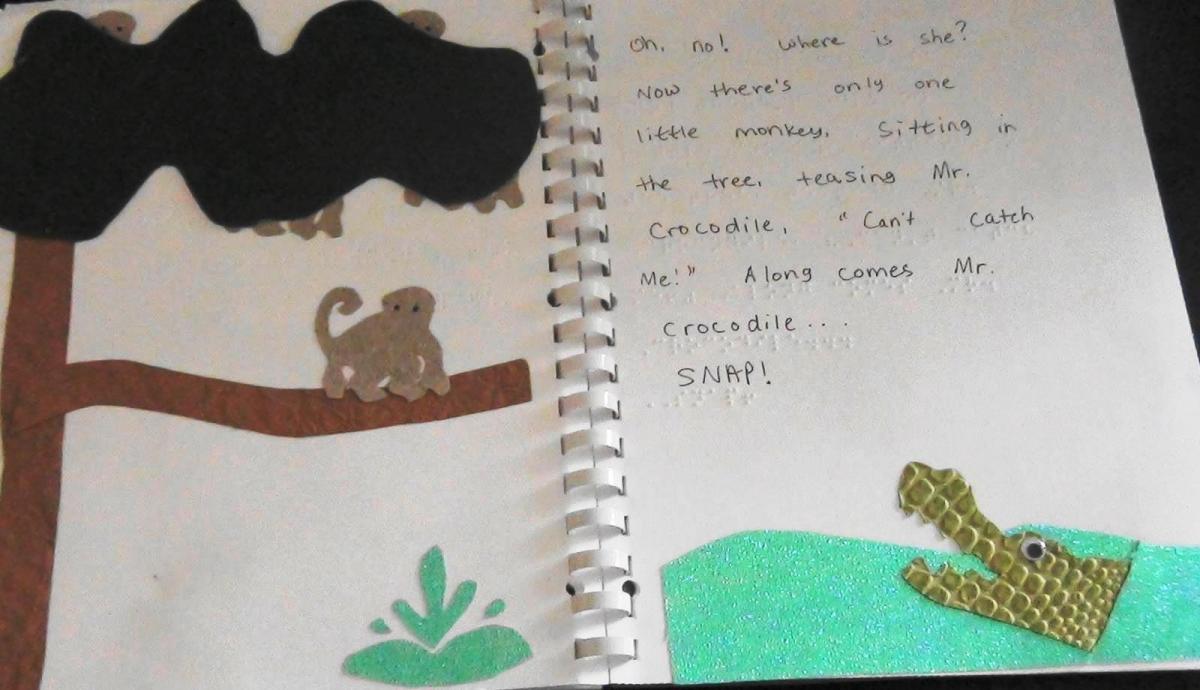 Oh, no! Where is she?
Now there's only one
little monkey, sitting in
the tree, teasing Mr.
Crocodile, "Can't catch
Me!" Along comes Mr.
Crocodile...
SNAP!